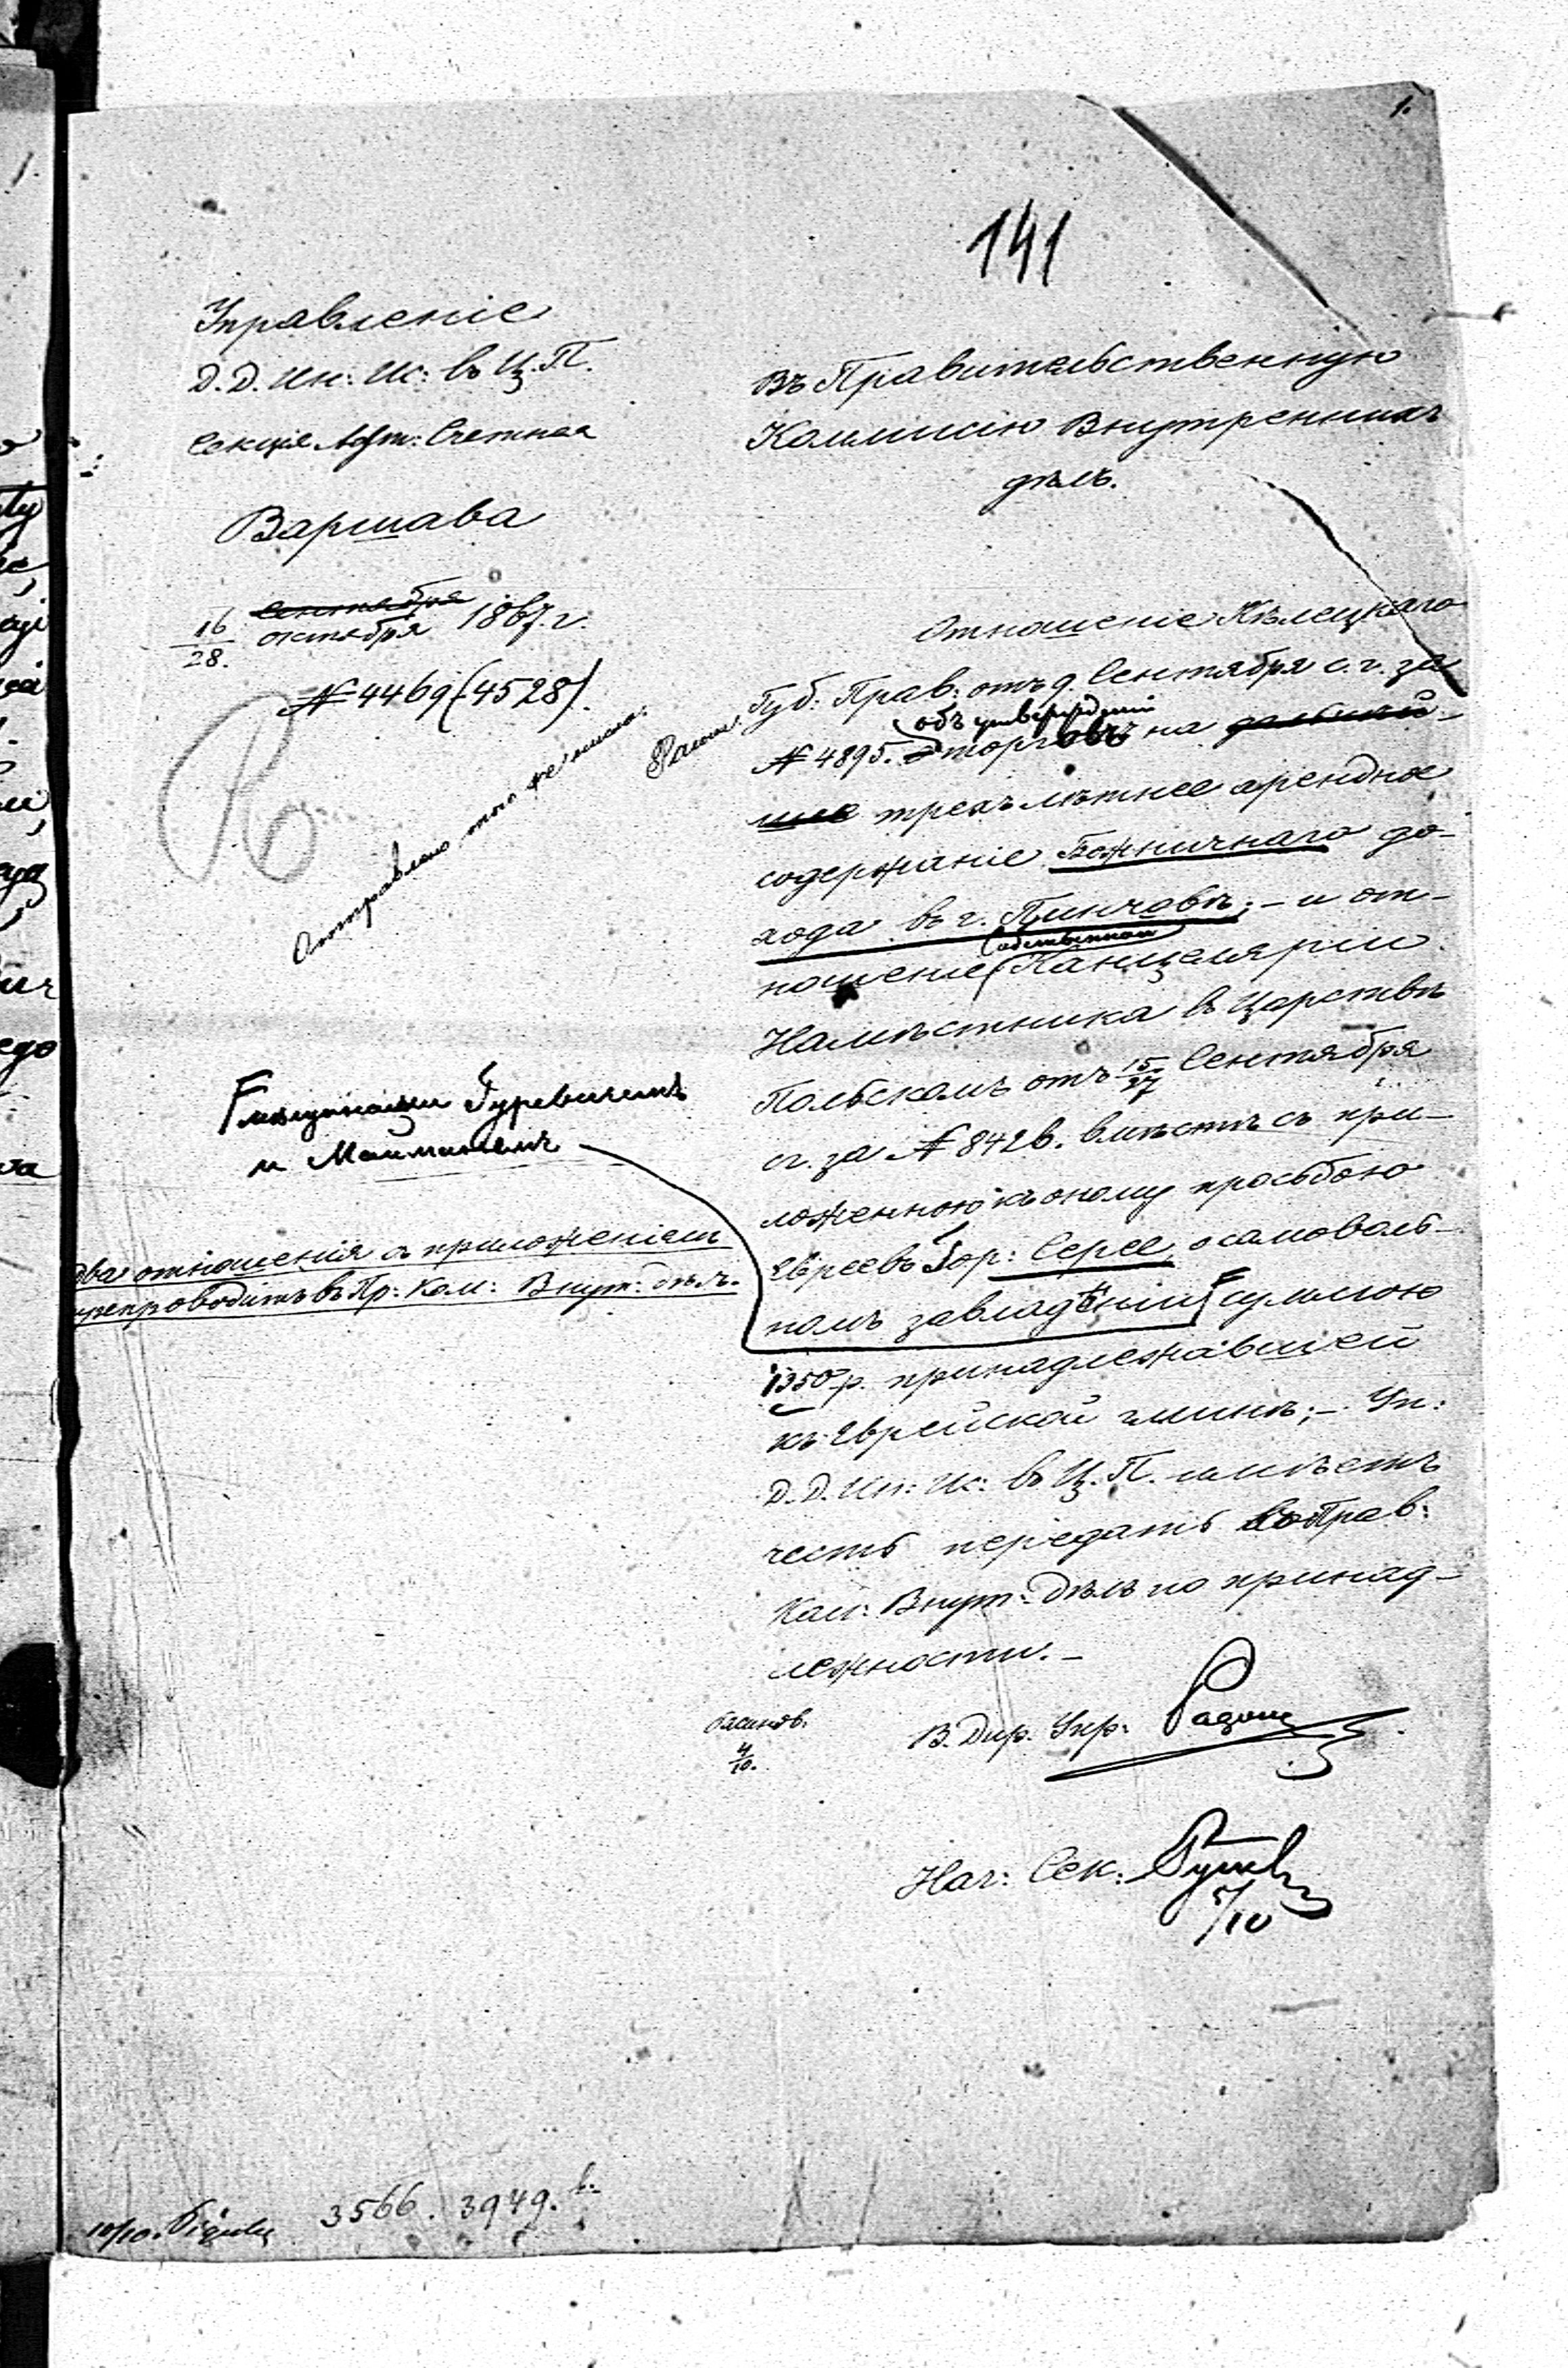 1.
141
Управленіе
Д. Д. Ин: Ис: въ Ц. П.
Секція Счетная
Варшава
16/28. сентября октября 1867. г.
№ 4469 (4528).
Отправлено того же числа.
Въ Правительственную
Коммисію Внутреннихъ
дѣлъ.
Отношеніе Кѣлецкаго
Губ: Прав: отъ 9. Сентября с. г. за
№ 4895. объ утвержденіи торговъ на
трехъ лѣтнее арендное
содержаніе Божничнаго до-
хода въ г. Пинчовѣ; – и от-
ношеніе Собственной Канцеляріи
Намѣстника въ Царствѣ
Польскомъ отъ 15/27 Сентября
с. г. за № 8426. вмѣстѣ съ при-
ложенною къ оному просьбою
Евреевъ Гор: Серее о самоволь-
номъ завладѣніи суммою
1350 р. принадлежавшей
къ Еврейской гминѣ; – Уп:
Д. Д. Ин: Ис: въ Ц. П. имѣетъ
честь передать въ Прав:
Ком: Внут: Дѣлъ по принад-
лежности. –
мѣщанами Гуревичемъ
и
два отношенія съ приложеніемъ
препроводить въ Пр: Ком: Внут: дѣлъ.
4/10.
В. Дир. Упр:
Нач: Сек:
5/10
10/10.
3566. 3949.